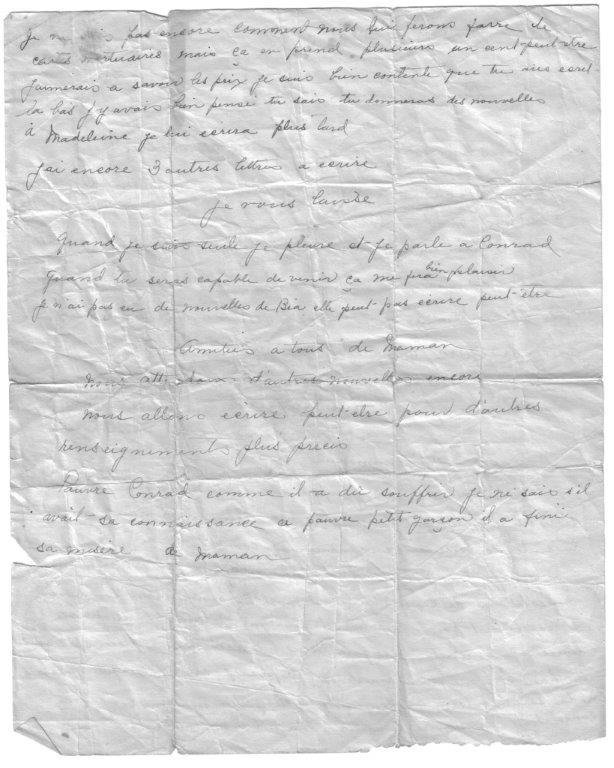 Je pas encore comment nous lui ferons faire de
cartes mortuaires mais ça en prend plusieurs un cent peut-être
J'aimerais a savoir les prix je suis bien contente que tu aies ecrit
la bas j'y avais bien pensé tu sais tu donneras des nouvelles
à Madeleine je lui ecrira plus tard
j'ai encore 3 autres lettres a ecrire
je vous laisse
Quand je suis seule je pleure et je parle a Conrad
Quand tu seras capable de venir ça me fera bien plaisir
je n'ai pas eu de nouvelles de Béa elle peut pas ecrire peut-être
Amitiés a tous de Maman
Nous d'autres nouvelles encore
nous allons ecrire peut-etre pour d'autres
renseignements plus précis
Pauvre Conrad comme il a dû souffrir je ne sais s'il
avait sa connaissance ce pauvre petit garçon il a fini
sa misère de Maman